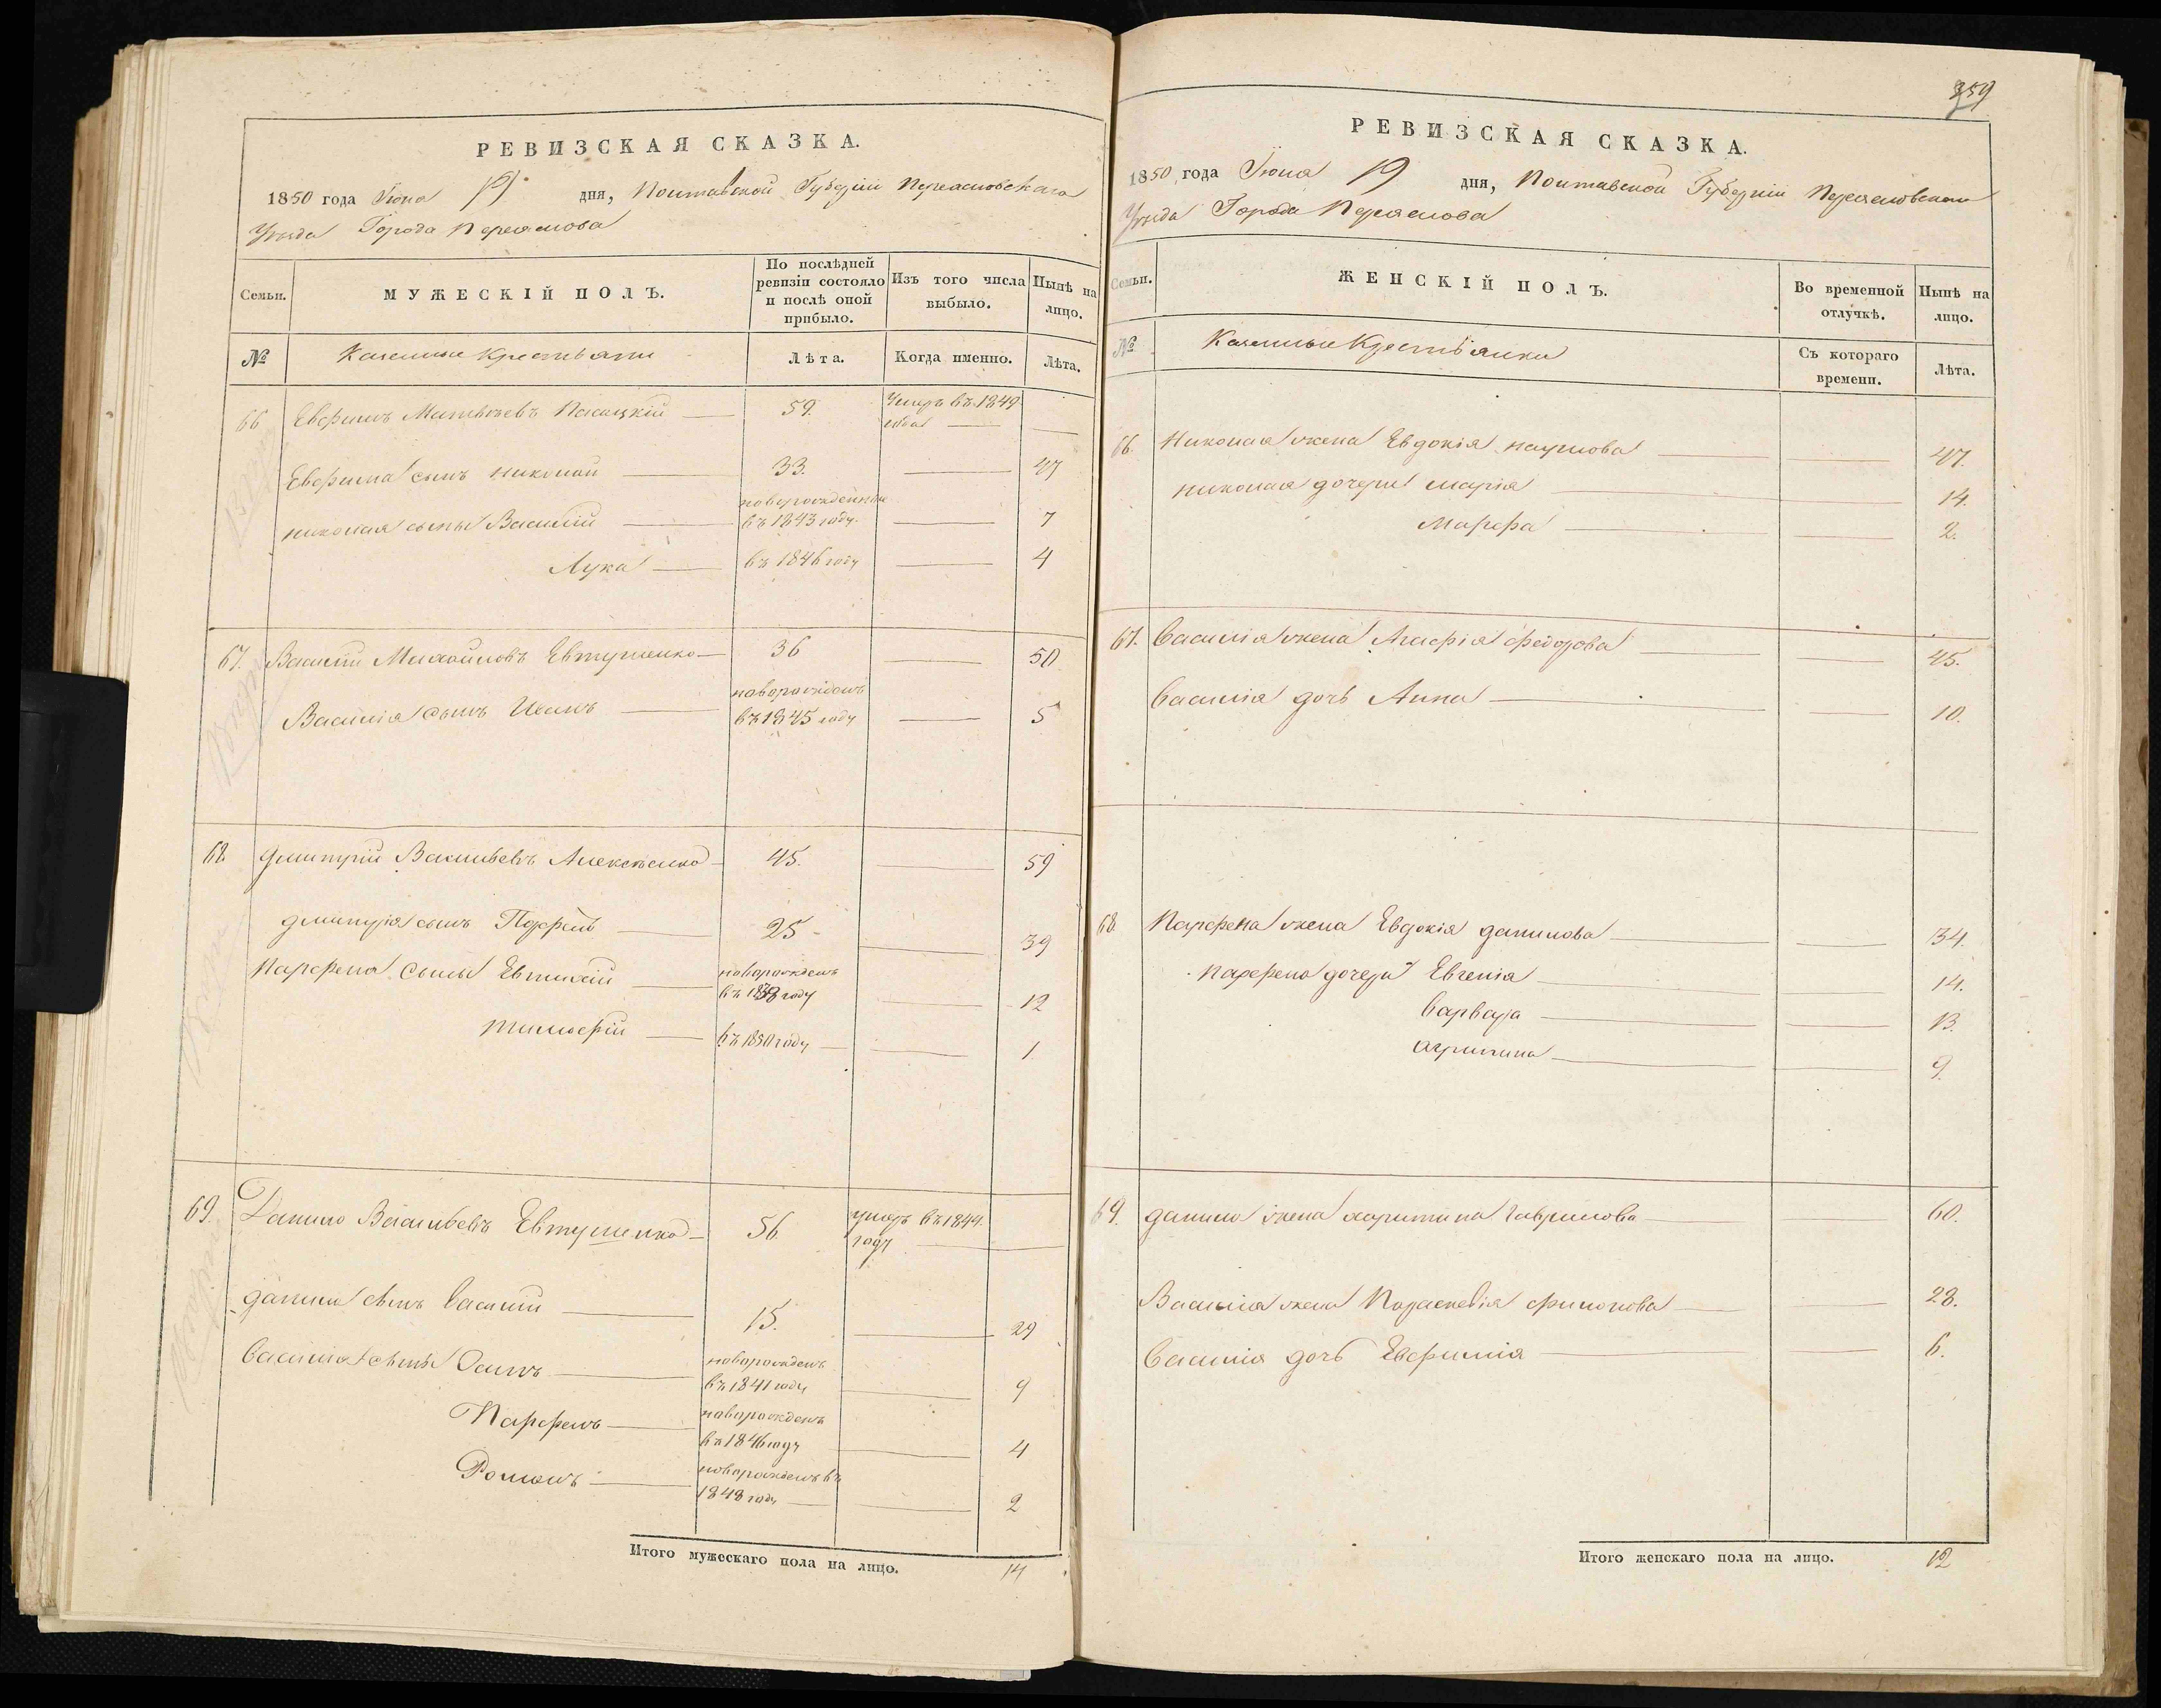 РЕВИЗСКАЯ СКАЗКА.
1850 года Июна 19 дня, Полтавской Губерніи Переясловскаго
Уезда Города Переяслова
Семьи.
МУЖЕСКІЙ ПОЛЪ.
По послѣдней ревизіи состояло и послѣ оной прибыло.
Изъ того числа выбыло.
Нынѣ на лицо.
№
Казенные Крестьяни
Лѣта.
Когда именно.
Лѣта.
66 Евфимъ Матвѣевъ 59. Умеръ въ 1849
Евфима сынъ Николай 33. 47
новорожденны
Николая сыны Василій въ 1843 году. 7
Лука въ 1846 году 4
67. Василій Михайловъ Евтушенко 36 50
новорожденъ
Василія сынъ Иванъ въ 1845 году 5
68. Дмитрій Васильевъ Алексѣенко 45. 59
Дмитрія сынъ Парфенъ 25 39
новорожденъ
Парфена сыны Евтихій въ 1838 году 12
Тимофій въ 1850 году 1
69. Данило Васильевъ Евтушенко 56 умеръ въ 1844 году
Данила сынъ Василій 15. 29
новорожденъ
Василія сыны Осипъ въ 1841 году 9
новорожденъ
Парфенъ въ 1846 году 4
новорожденъ въ
Романъ 1848 году 2
Итого мужескаго пола на лицо. 14
359
РЕВИЗСКАЯ СКАЗКА.
1850 года Июна 19 дня, Полтавской Губерніи Переясловскаго
Уезда Города Переяслова
Семьи.
ЖЕНСКІЙ ПОЛЪ.
Во временной отлучкѣ.
Нынѣ на лицо.
№
Казенные Крестьянки
Съ котораго времени.
Лѣта.
66. Николая жена Евдокія Наумова 47.
Николая дочери Марія 14.
Марфа 2.
67. Василія жена Агафія Федорова 45.
Василія дочь Анна 10.
68. Парфена жена Евдокія Данилова 34.
Парфена дочери Евгенія 14.
Варвара 13.
Агрипина 9.
69. Данила жена Харитина Гаврилова 60.
Василія жена Параскевія Филонова 28.
Василія дочь Евфимія 6.
Итого женскаго пола на лицо. 12